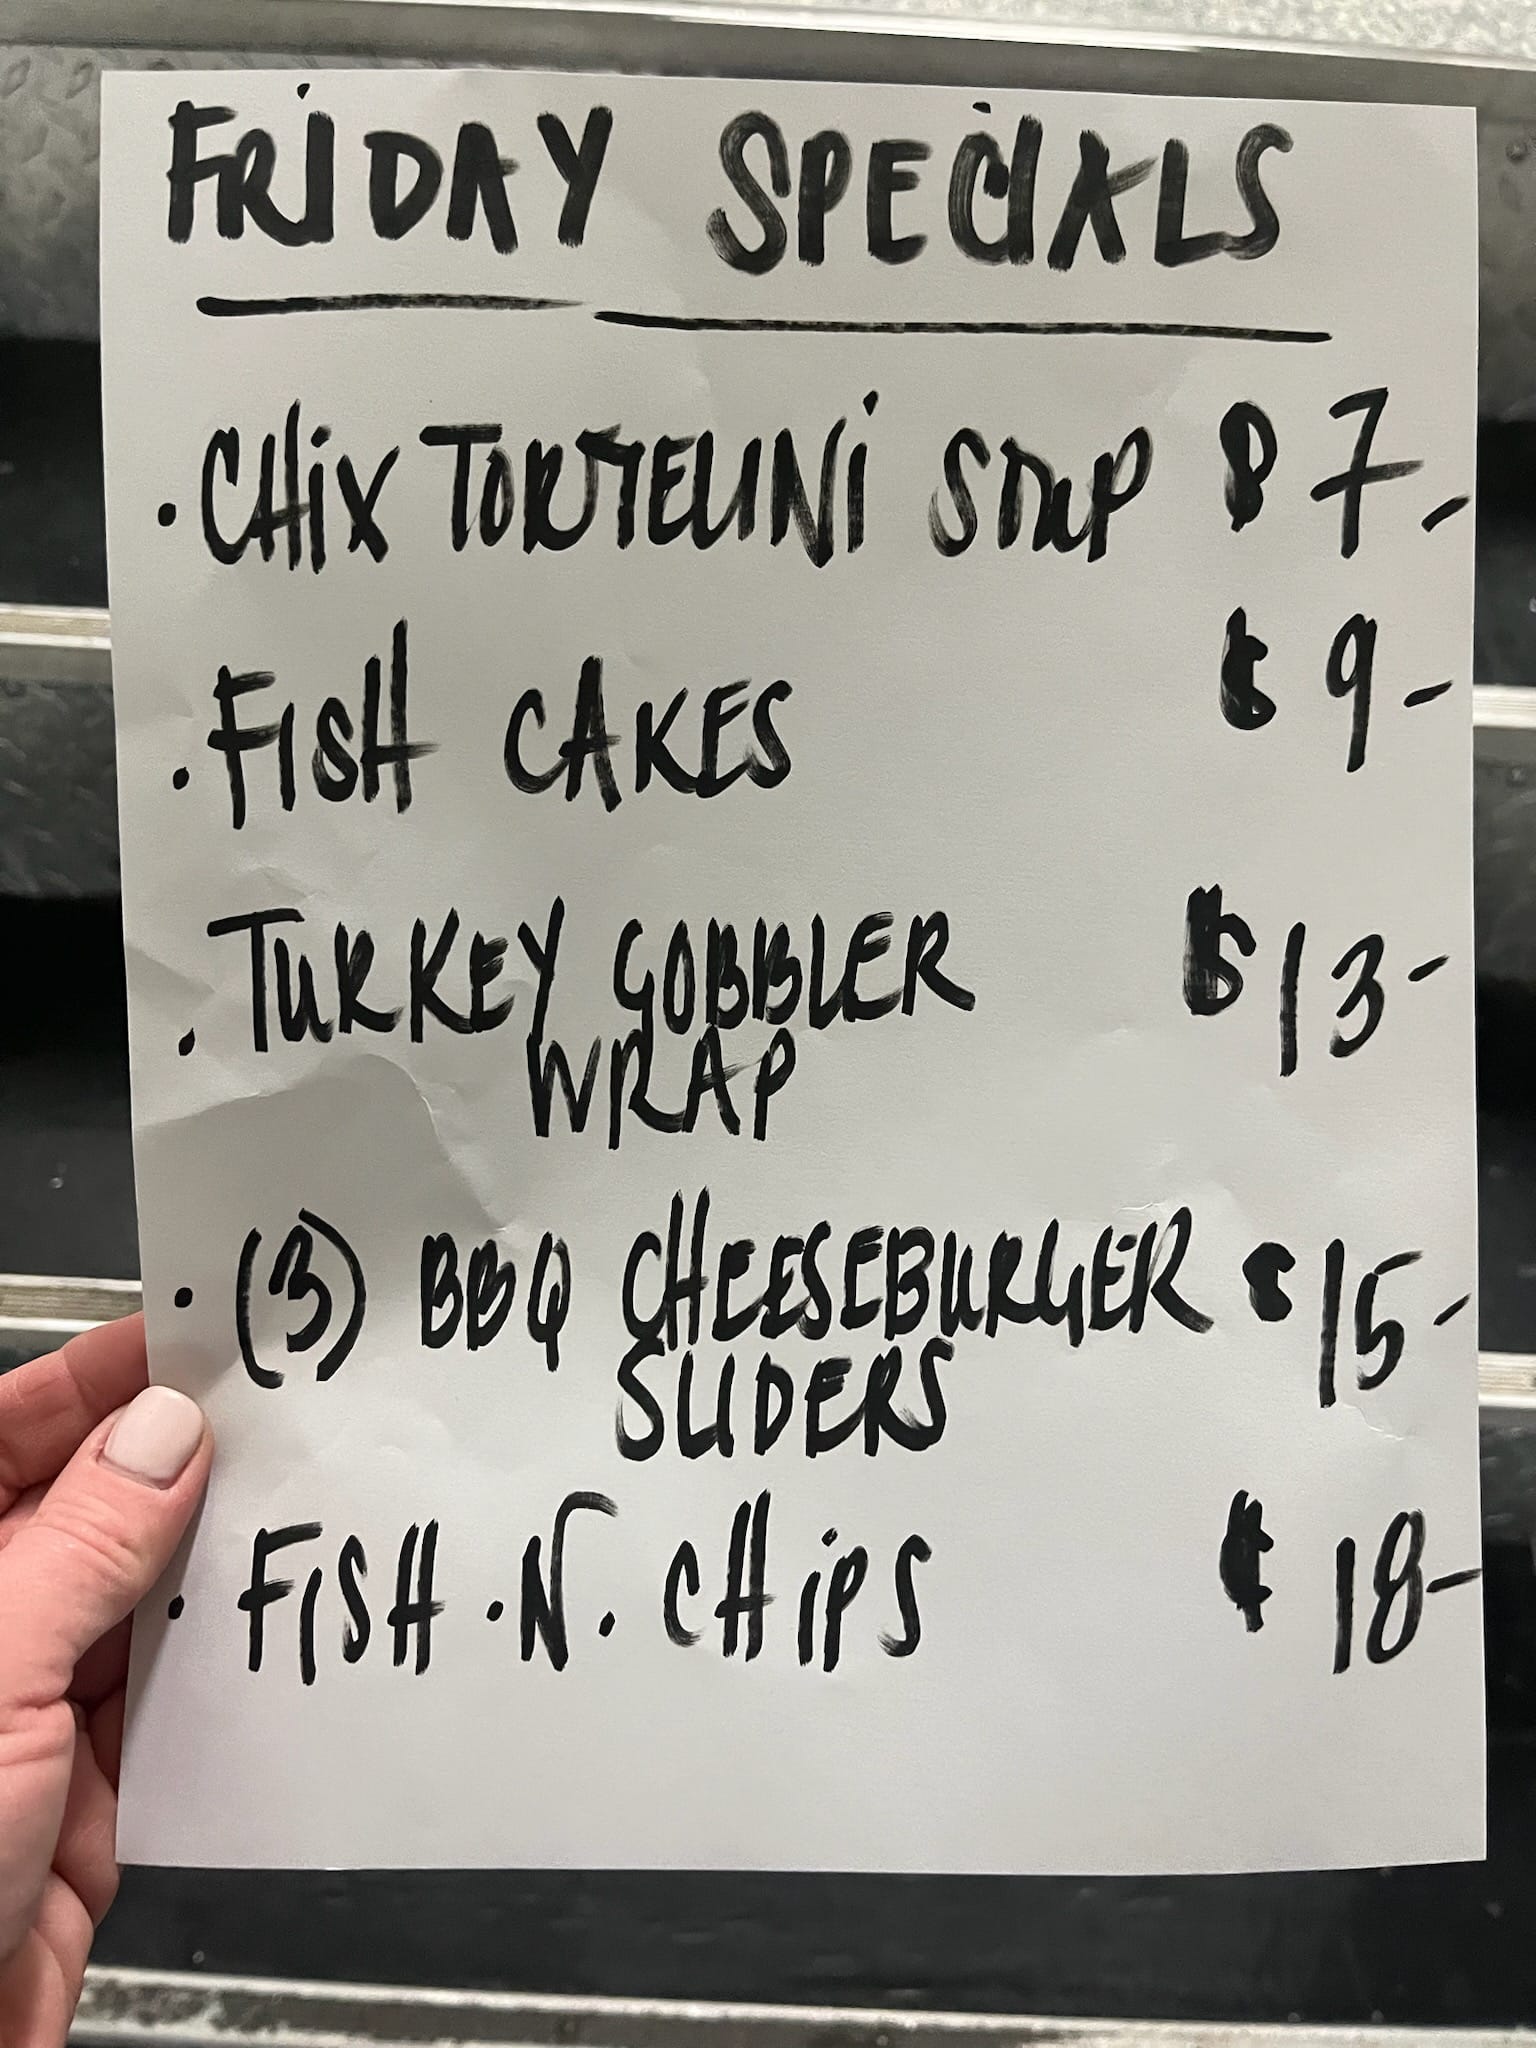 FRiDAY SPECiALS
• CHiX TORTELLINi SOUP $7-
• FISH CAKES $9-
• TURKEY GOBBLER $13-
WRAP
• (3) BBQ CHEESEBURGER $15-
SLIDERS
• FISH •N• CHiPS $18-